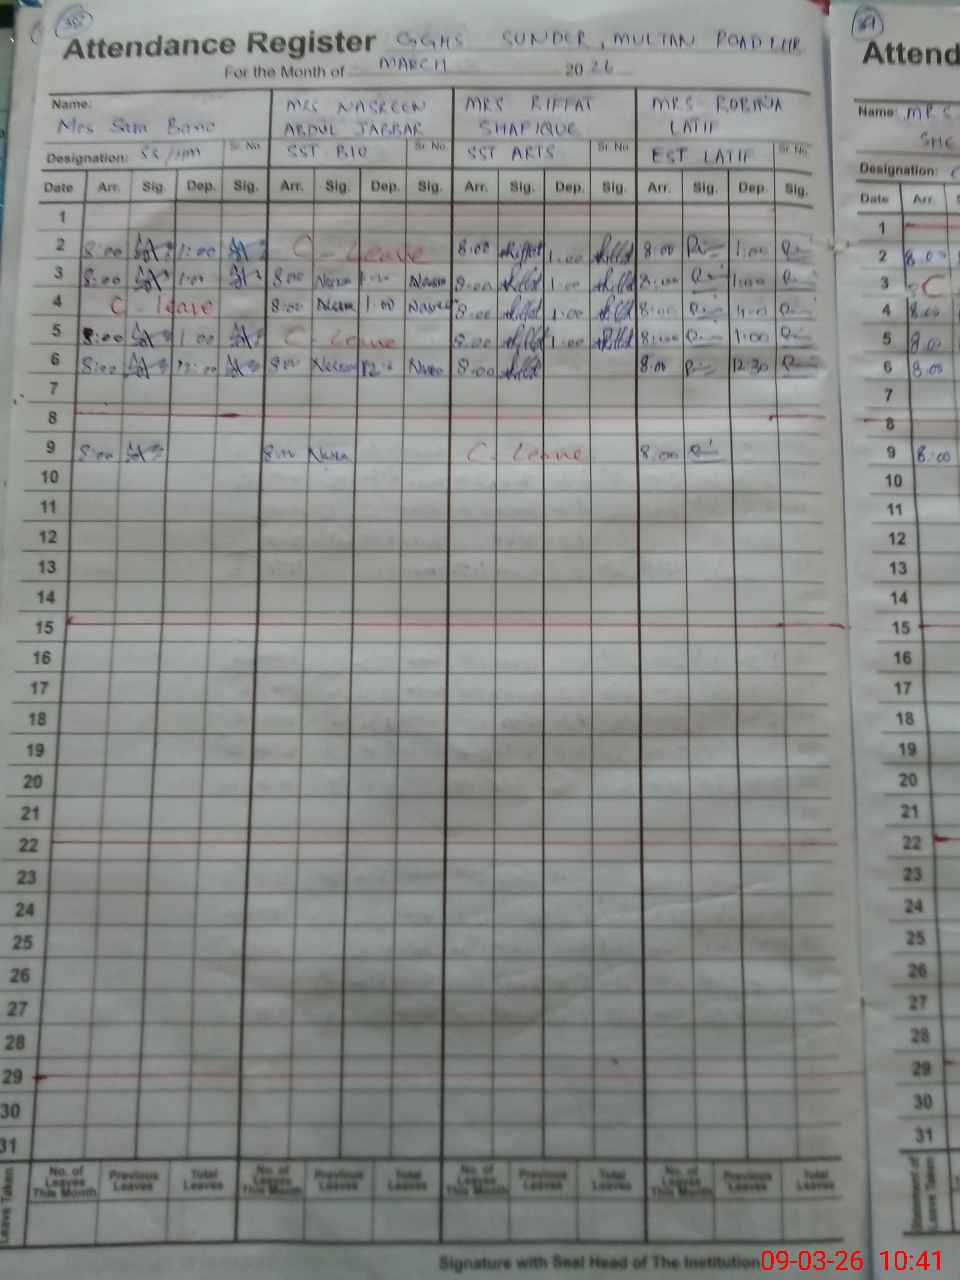 30
Attendance Register GGHS SUNDER, MULTAN ROAD LHR
For the Month of MARCH 2026
Name: Mrs Sara Bano
MRS NASREEN ABDUL JABBAR
MRS RIFFAT SHAFIQUE
MRS ROBINA LATIF
Designation: SS/HM Sr. No
SST BIO Sr. No
SST ARTS Sr. No
EST LATIF Sr. No
Date Arr. Sig. Dep. Sig. Arr. Sig. Dep. Sig. Arr. Sig. Dep. Sig. Arr. Sig. Dep. Sig.
1
2 8:00 1:00 C - Leave 8:00 1:00 8:00 1:00
3 8:00 1:00 8:00 1:00 8:00 1:00 8:00 1:00
4 C - leave 8:00 1:00 8:00 1:00 8:00 1:00
5 8:00 1:00 C - Leave 8:00 1:00 8:00 1:00
6 8:00 12:00 8:00 8:00 8:00 12:30
7
8
9 8:00 8:00 C - Leave 8:00
10
11
12
13
14
15
16
17
18
19
20
21
22
23
24
25
26
27
28
29
30
31
Leave Taken
No. of Leaves This Month Previous Leaves Total Leaves No. of Leaves This Month Previous Leaves Total Leaves No. of Leaves This Month Previous Leaves Total Leaves No. of Leaves This Month Previous Leaves Total Leaves
Signature with Seal Head of The Institution
31
Attend
Name: MRS
Designation:
Date Arr.
1
2 8:00
3 C
4 8:00
5 8:00
6 8:00
7
8
9 8:00
10
11
12
13
14
15
16
17
18
19
20
21
22
23
24
25
26
27
28
29
30
31
Statement of Leave Taken
09-03-26 10:41